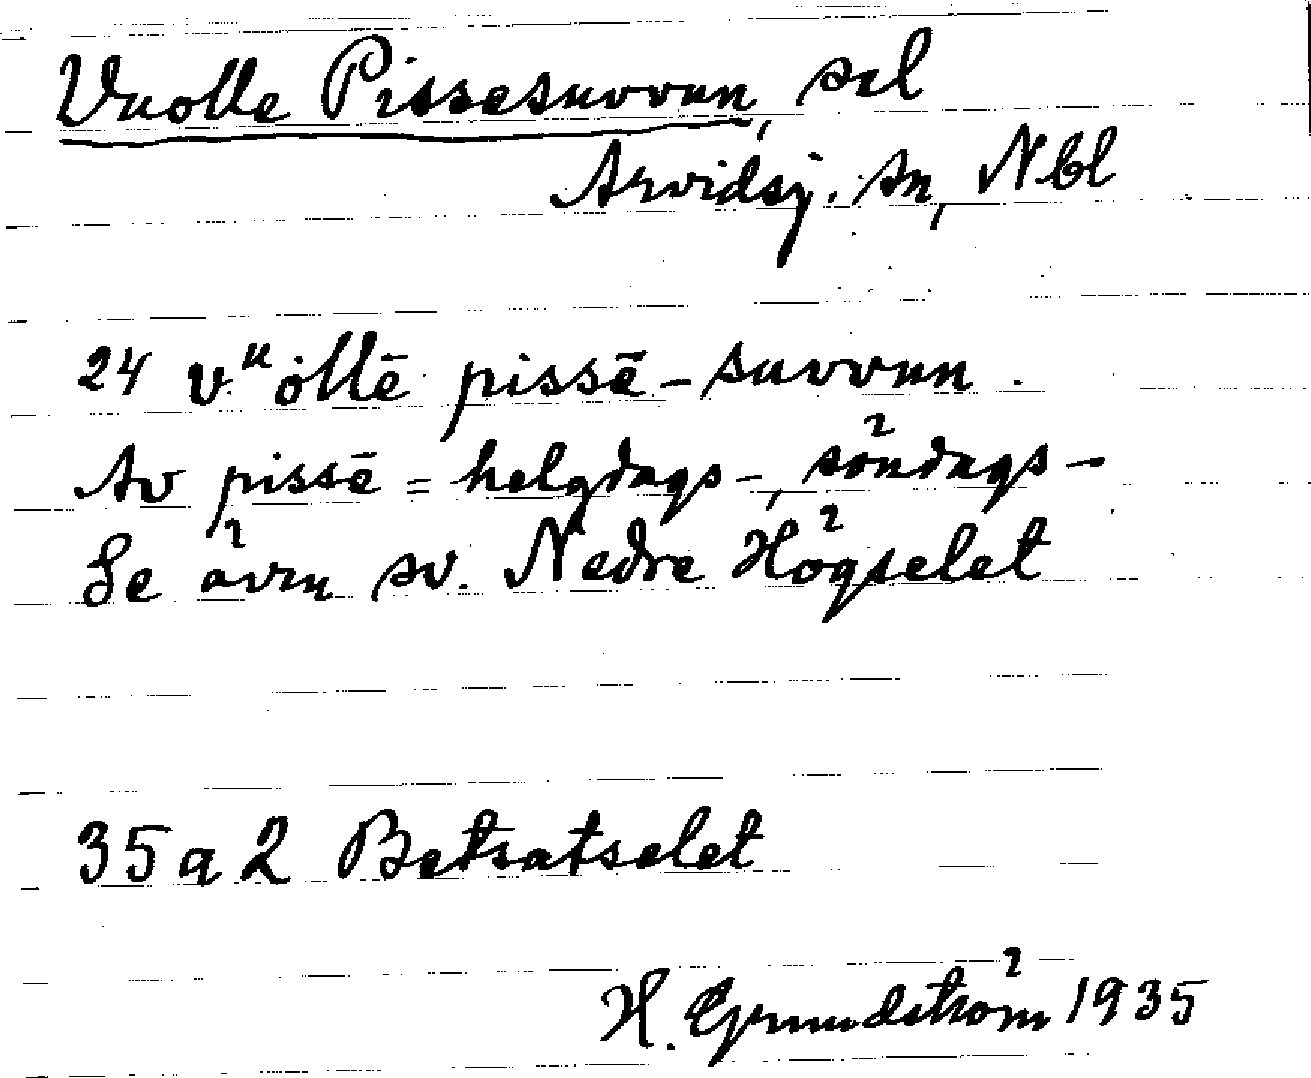 Vuolle Pissesuvvun, sel
Arvidsj. sn, Nbl
24 vᵘȯllē pissē-suvvun.
Av pissē = helgdags-, söndags-
Se även sv. Nedre Högselet
35 a 2 Betsatselet
H. Grundström 1935